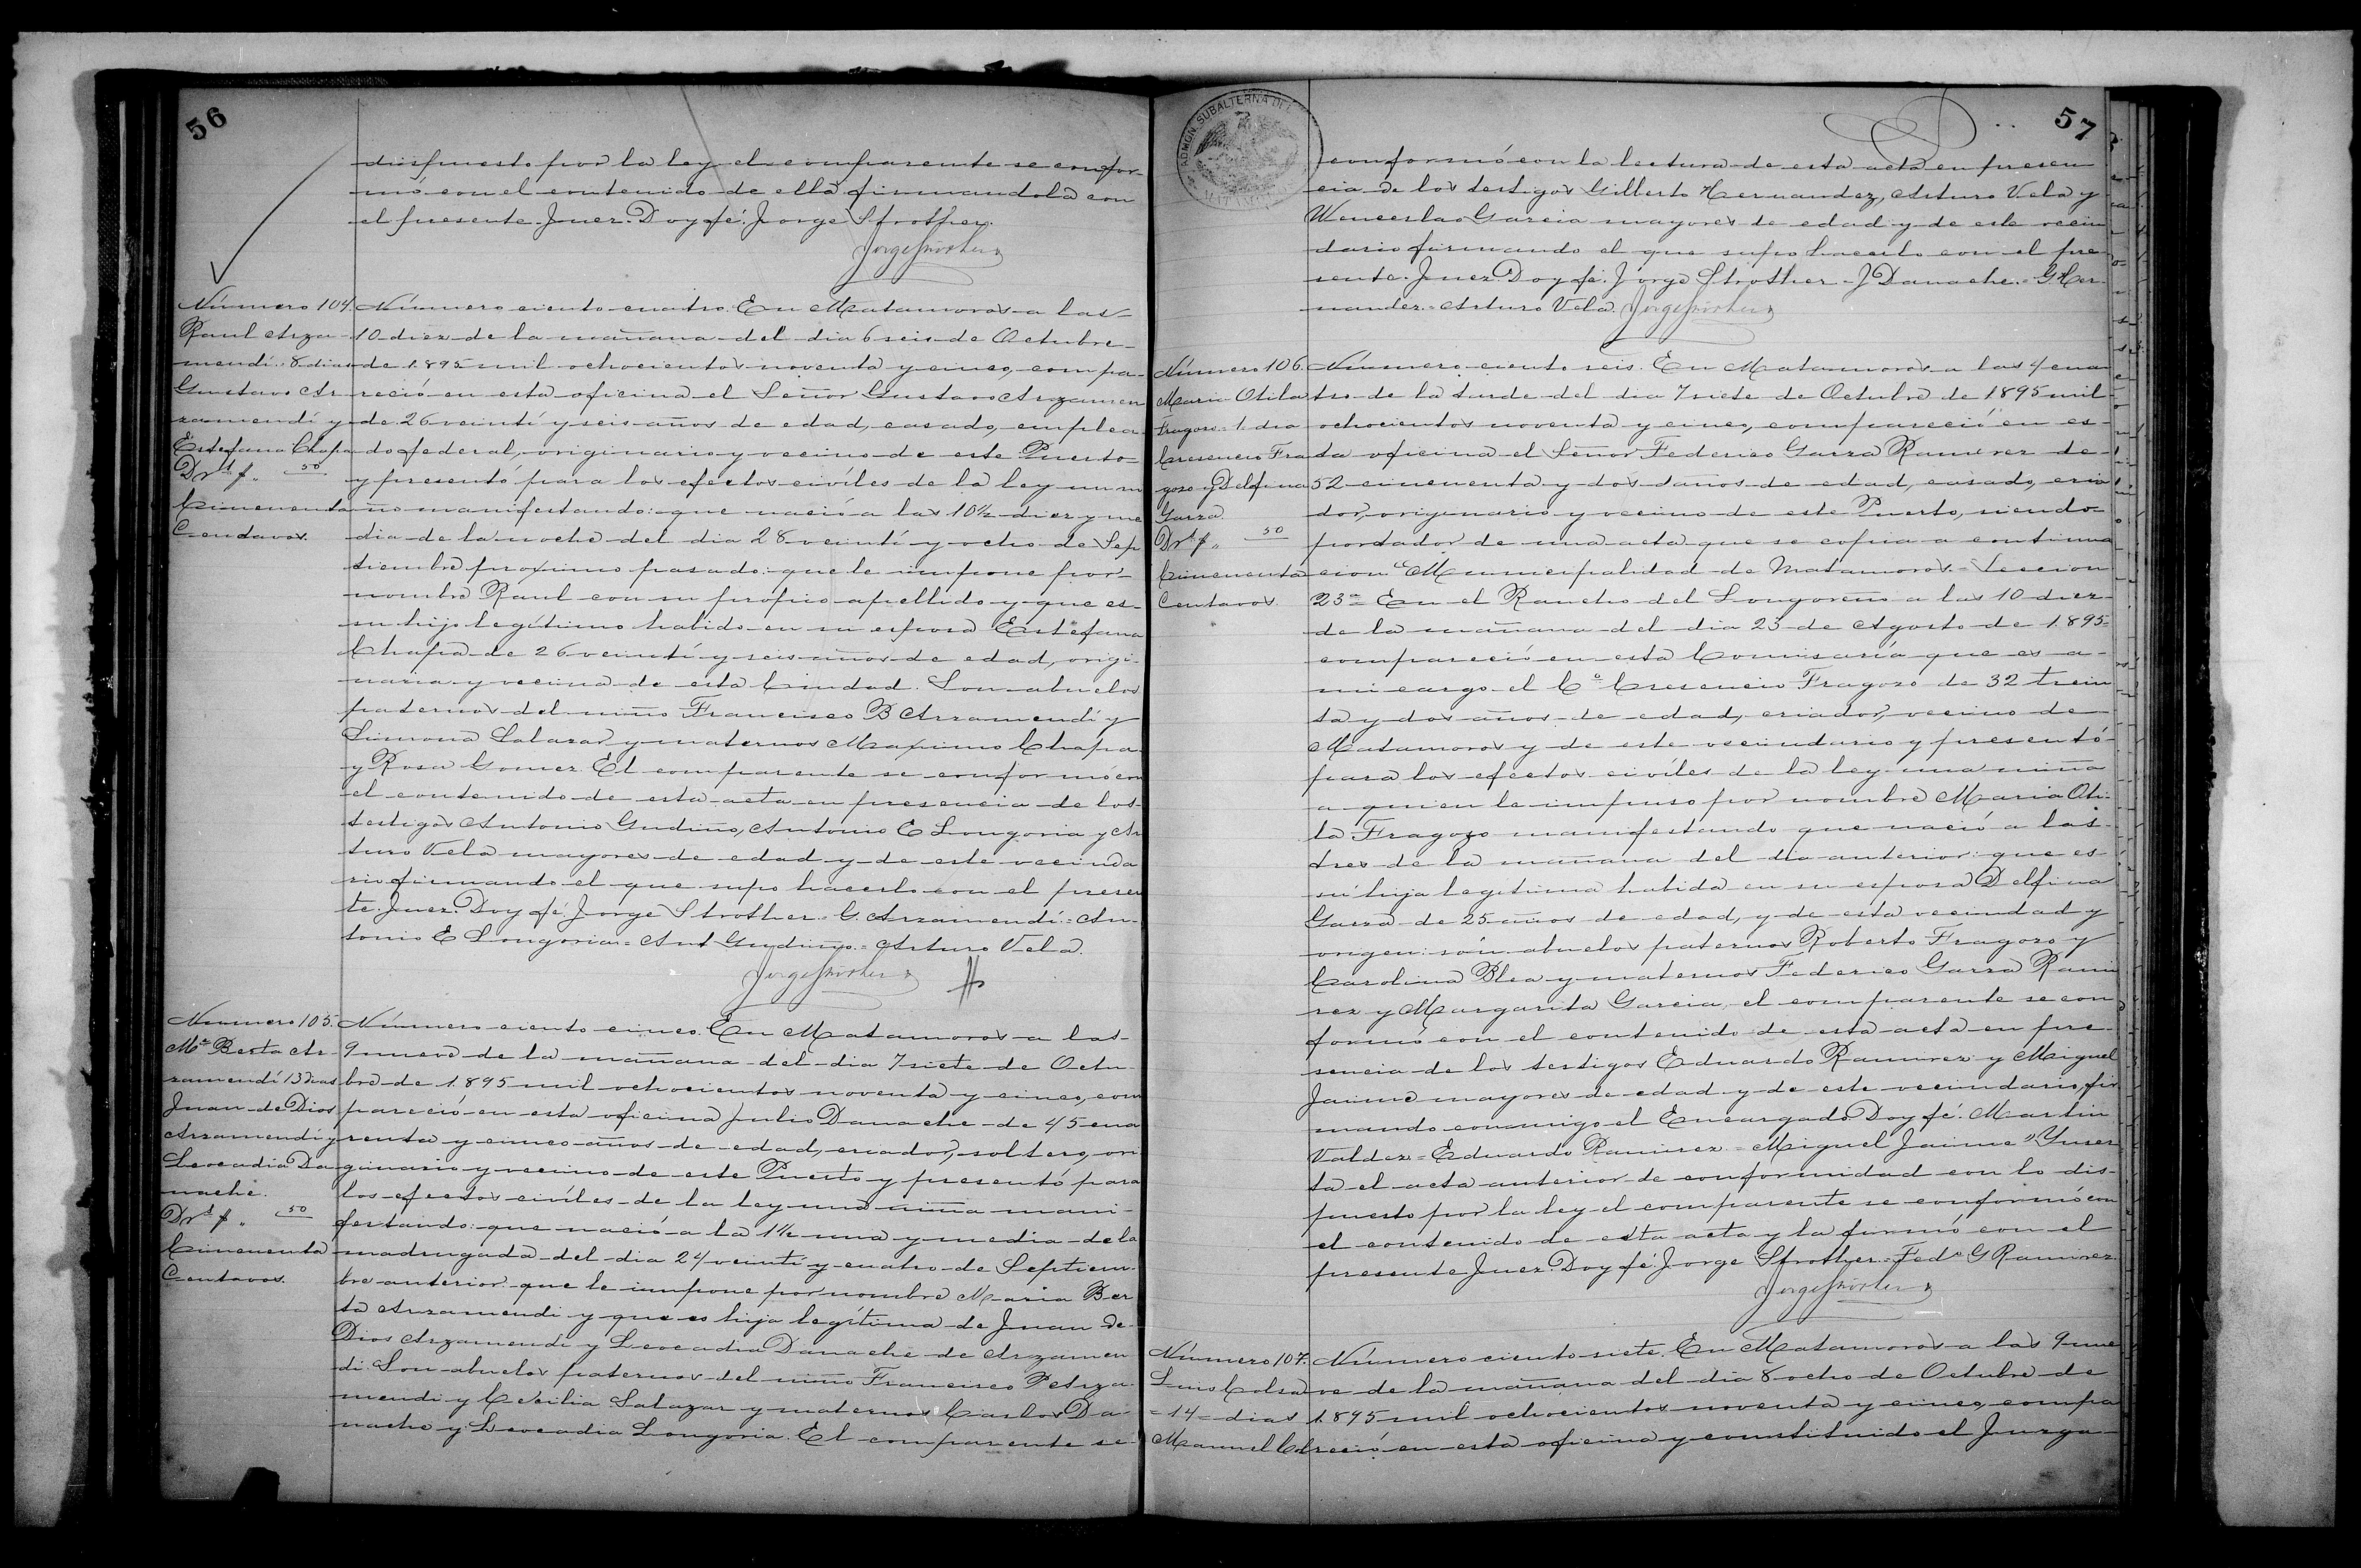 56
dispuesto por la ley el comparente se confor-
mó con el contenido de ella firmandola con
el presente Juez. Doy fé. Jorge Strother.
Jorge Strother
Número 104.
Raul Arza-
mendi. 8 dias
Gustavo Ar-
zamendi y
Estefana Chapa
Drs. $ „ 50
Cincuenta
Centavos.
Número ciento cuatro. En Matamoros a las
10 diez de la mañana del dia 6 seis de Octubre
de 1895 mil ochocientos noventa y cinco, compa-
reció en esta oficina el Señor Gustavo Arzamen
de 26 veinti y seis años de edad, casado, emplea-
do federal, originario y vecino de este Puerto
y presentó para los efectos civíles de la ley un ni
no manifestando: que nació a las 10½ diez y me
dia de la noche del dia 28 veinti y ocho de Sep
tiembre proximo pasado: que le impone por
nombre Raul con su propio apellido y que es
su hijo legítimo habido en su esposa Estefana
Chapa de 26 veinti y seis años de edad, origi-
naria y vecina de esta Ciudad. Son abuelos
paternos del niño Francisco B Arzamendi y
Simona Salazar y maternos Maximo Chapa
y Rosa Gomez. El comparente se conformó con
el contenido de esta acta en presencia de los
testigos Antonio Gudiño, Antonio E Longoria y Ar
turo Vela mayores de edad y de este vecinda
rio firmando el que supo hacerlo con el presen
te Juez. Doy fé. Jorge Strother = G. Arzamendi = An-
tonio E Longoria = Ant Gudiño = Arturo Vela.
Jorge Strother
Número 105.
Ma. Berta Ar-
zamendi 13 dias
Juan de Dios
Arzamendi y
Leocadia Da
nache.
Drs. $ „ 50
Cincuenta
Centavos.
Número ciento cinco. En Matamoros a las
9 nueve de la mañana del dia 7 siete de Octu-
bre de 1,895 mil ochocientos noventa y cinco, com
pareció en esta oficina Julio Danache de 45 cua
renta y cinco años de edad, criador, soltero, ori
ginario y vecino de este Puerto y presentó para
los efectos civíles de la ley una niña mani-
festando: que nació a la 1½ una y media de la
madrugada del dia 24 veinti y cuatro de Septiem-
bre anterior que le impone por nombre Maria Ber
ta Arzamendi y que es hija legítima de Juan de
Dios Arzamendi y Leocadia Danache de Arzamen
di. Son abuelos paternos del niño Francisco P Arza-
mendi y Cecilia Salazar y maternos Carlos Da-
nache y Leocadia Longoria. El comparente se
57
ADMON. SUBALTERNA DEL
MATAMOROS
conformó con la lectura de esta acta en presen
cia de los testigos Gilberto Hernandez, Arturo Vela y
Wenceslao Garcia mayores de edad y de este vecin
dario firmando el que supo hacerlo con el pre-
sente Juez. Doy fé. Jorge Strother = J Danache. = G Her
nandez. = Arturo Vela. Jorge Strother
Número 106.
Maria Otila
Fragoso 1 dia
Cresencio Fra
goso y Delfina
Garza.
Drs. $ „ 50
Cincuenta
Centavos.
Número ciento seis. En Matamoros a las 4 cua
tro de la tarde del dia 7 siete de Octubre de 1895 mil
ochocientos noventa y cinco, compareció en es-
ta oficina el Señor Federico Garza Ramirez de
52 cincuenta y dos años de edad, casado, cria
dor, originario y vecino de este Puerto, siendo
portador de una acta que se copia a continua
cion "Municipalidad de Matamoros. = Seccion
23a = En el Rancho del Longoreño a las 10 diez
de la mañana del dia 23 de Agosto de 1.895=
compareció en esta Comisaría que es a
mi cargo el Co. Cresencio Fragozo de 32 trein
ta y dos años de edad, criador, vecino de
Matamoros y de este vecindario y presentó
para los efectos civíles de la ley una niña
a quien le impuso por nombre Maria Oti-
la Fragozo manifestando que nació a las
tres de la mañana del dia anterior: que es
su hija legítima habida en su esposa Delfina
Garza de 25 años de edad, y de esta vecindad y
origen: són abuelos paternos Roberto Fragozo y
Carolina Blea y maternos Federico Garza Rami
rez y Margarita Garcia, el comparente se con
formó con el contenido de esta acta en pre-
sencia de los testigos Eduardo Ramirez y Miguel
Jaime mayores de edad y de este vecindario, fir
mando conmigo el Encargado Doy fé. Martin
Valdez = Eduardo Ramirez = Miguel Jaime" Yncer
ta el acta anterior de conformidad con lo dis-
puesto por la ley el comparente se conformó con
el contenido de esta acta y la firmó con el
presente Juez. Doy fé. Jorge Strother = Fedo G Ramirez.
Jorge Strother
Número 107.
Luis Colsa
= 14 = dias
Manuel Col
Número ciento siete. En Matamoros a las 9 nue
ve de la mañana del dia 8 ocho de Octubre de
1.895 mil ochocientos noventa y cinco, compa
reció en esta oficina y constituido el Juzga-